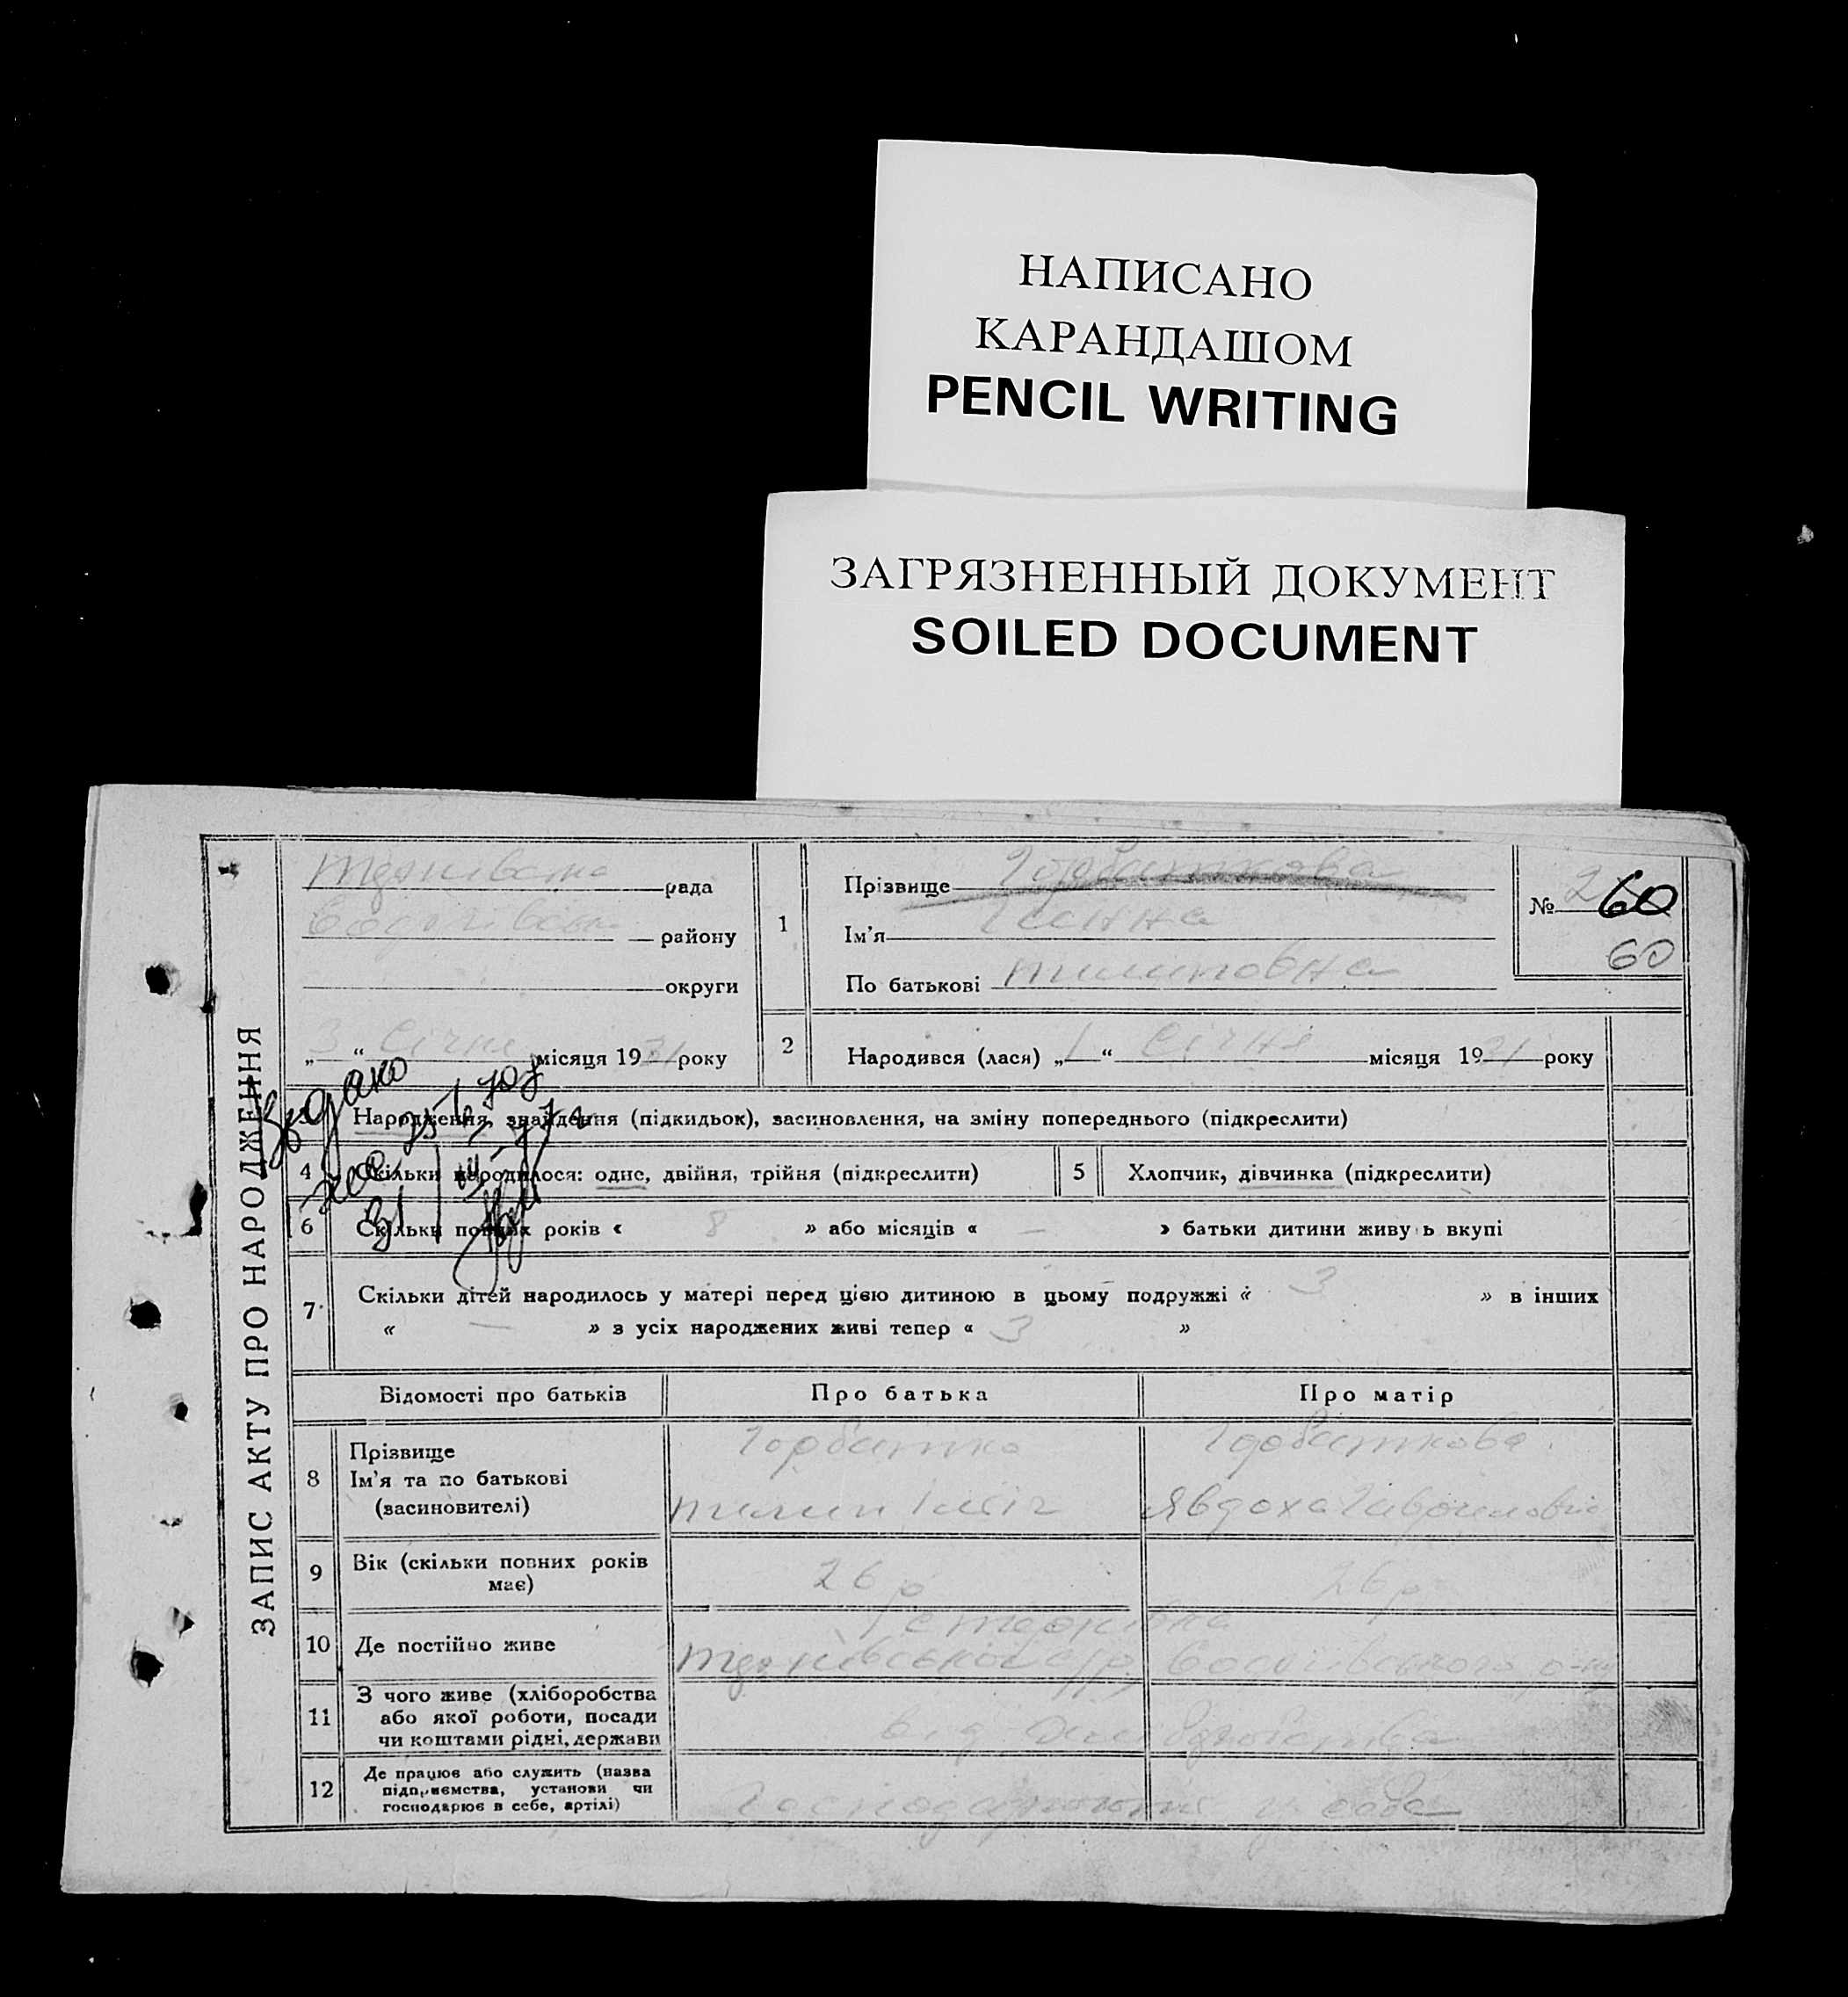 НАПИСАНО
КАРАНДАШОМ
PENCIL WRITING
ЗАГРЯЗНЕННЫЙ ДОКУМЕНТ
SOILED DOCUMENT
ЗАПИС АКТУ ПРО НАРОДЖЕННЯ
рада
району
округи
„3“ Січня місяця 1931 року
1
Прізвище Горбаткова
Ім'я Ганна
По батькові Пилиповна
№ 60
60
2
Народився (лася) „1“ Січня місяця 1931 року
Видано
Народження, знайдення (підкидьок), засиновлення, на зміну попереднього (підкреслити)
4 Скільки народилося: одне, двійня, трійня (підкреслити)
5 Хлопчик, дівчинка (підкреслити)
6 Скільки повних років « 8 » або місяців « — » батьки дитини живу ь вкупі
7 Скільки дітей народилось у матері перед цією дитиною в цьому подружжі « 3 » в інших
« — » з усіх народжених живі тепер « 3 »
Відомості про батьків
Про батька
Про матір
8
Прізвище
Ім'я та по батькові
(засиновителі)
Горбатко
Пилип
Горбаткова
Явдоха Гавриловна
9
Вік (скільки повних років
має)
26 р
26 р
10 Де постійно живе
11
З чого живе (хліборобства
або якої роботи, посади
чи коштами рідні, держави
від
12
Де працює або служить (назва
підприємства, установи чи
господарює в себе, артілі)
у себе